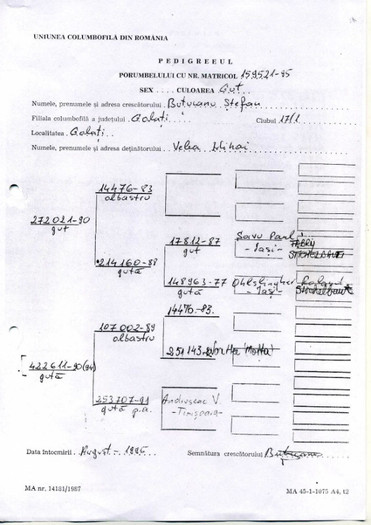 UNIUNEA COLUMBOFILĂ DIN ROMÂNIA
PEDIGREEUL
PORUMBELULUI CU NR. MATRICOL 159521-95
SEX .... CULOAREA Guț...
Numele, prenumele și adresa crescătorului. Butunanu Ștefan
Filiala columbofilă a județului. Galați.... Clubul 17/1
Localitatea. Galați..
Numele, prenumele și adresa deținătorului. Velea Mihai
14476-83
albastru
272021-90
guț
17812-87
guț
Savu Paul
-Iași-
214160-88
guță
148963-77
guță
-Iași-
14476-83.
107002-89
albastru
251143-
422611-90(94)
guță
253707-91
guță p.a.
Andrușeac V.
-Timișoara-
Data întocmirii. August-1995... Semnătura crescătorului
MA nr. 14181/1987
MA 45-1-1975 A4, t2